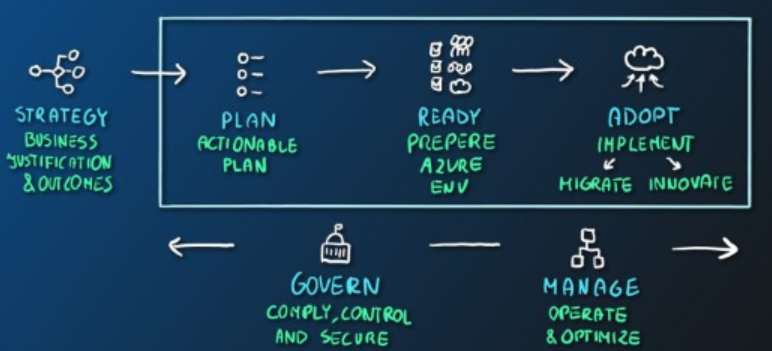 STRATEGY
BUSINESS
JUSTIFICATION
& OUTCOMES
PLAN
ACTIONABLE
PLAN
READY
PREPERE
AZURE
ENV
ADOPT
IMPLEMENT
MIGRATE INNOVATE
GOVERN
COMPLY, CONTROL
AND SECURE
MANAGE
OPERATE
& OPTIMIZE